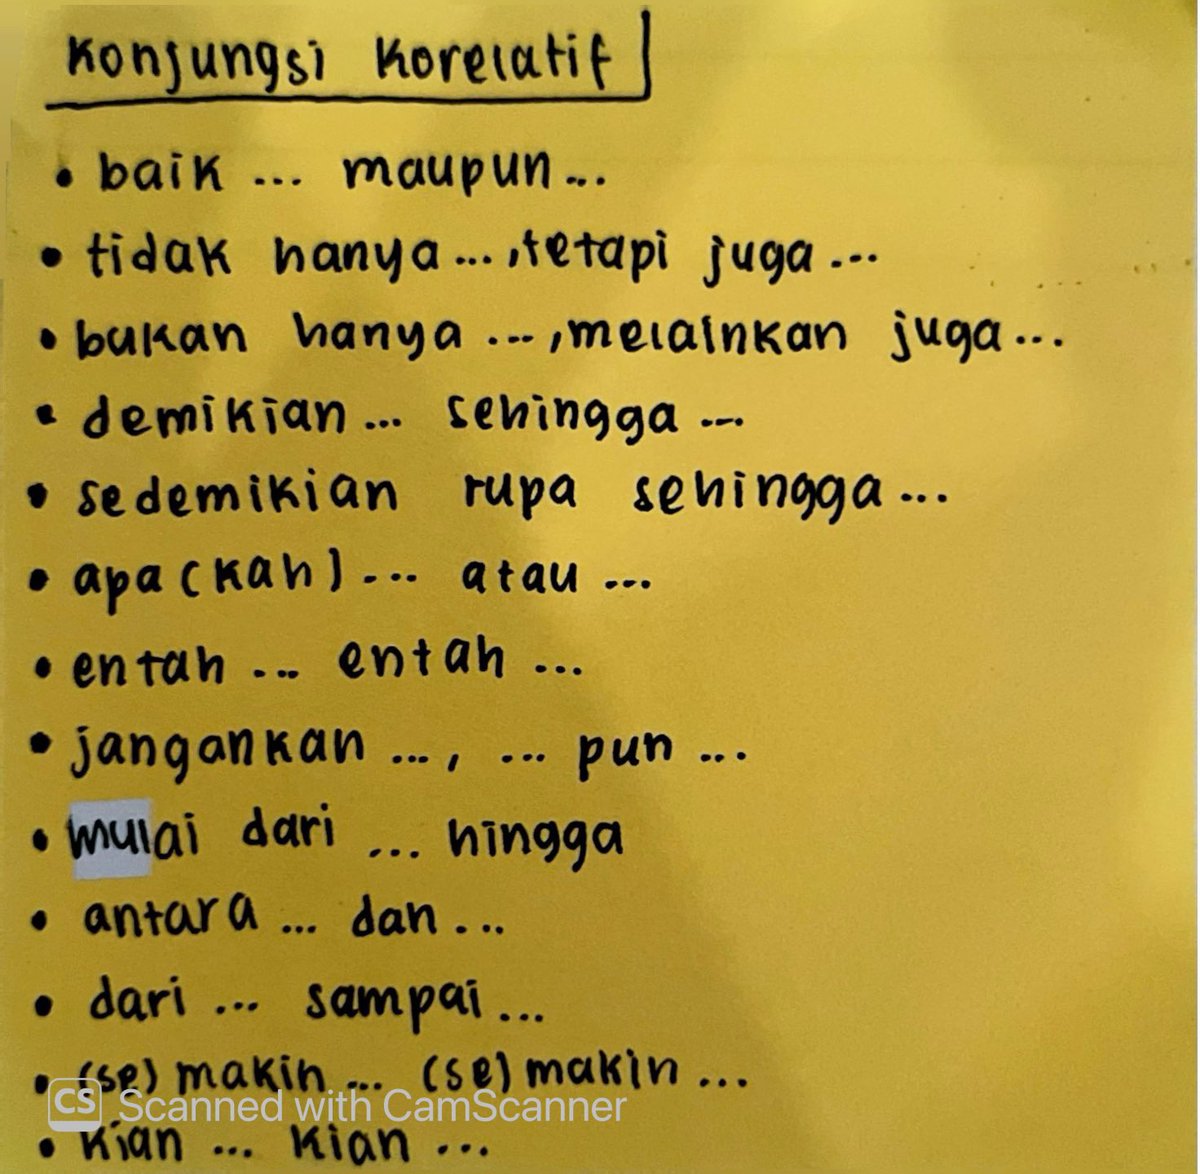 Konjungsi Korelatif
• baik ... maupun ...
• tidak hanya ... , tetapi juga ...
• bukan hanya ... , melainkan juga ...
• demikian ... sehingga ...
• sedemikian rupa sehingga ...
• apa(kah) ... atau ...
• entah ... entah ...
• jangankan ... , ... pun ...
• mulai dari ... hingga
• antara ... dan ...
• dari ... sampai ...
• (se)makin ... (se)makin ...
CS Scanned with CamScanner
• kian ... kian ...